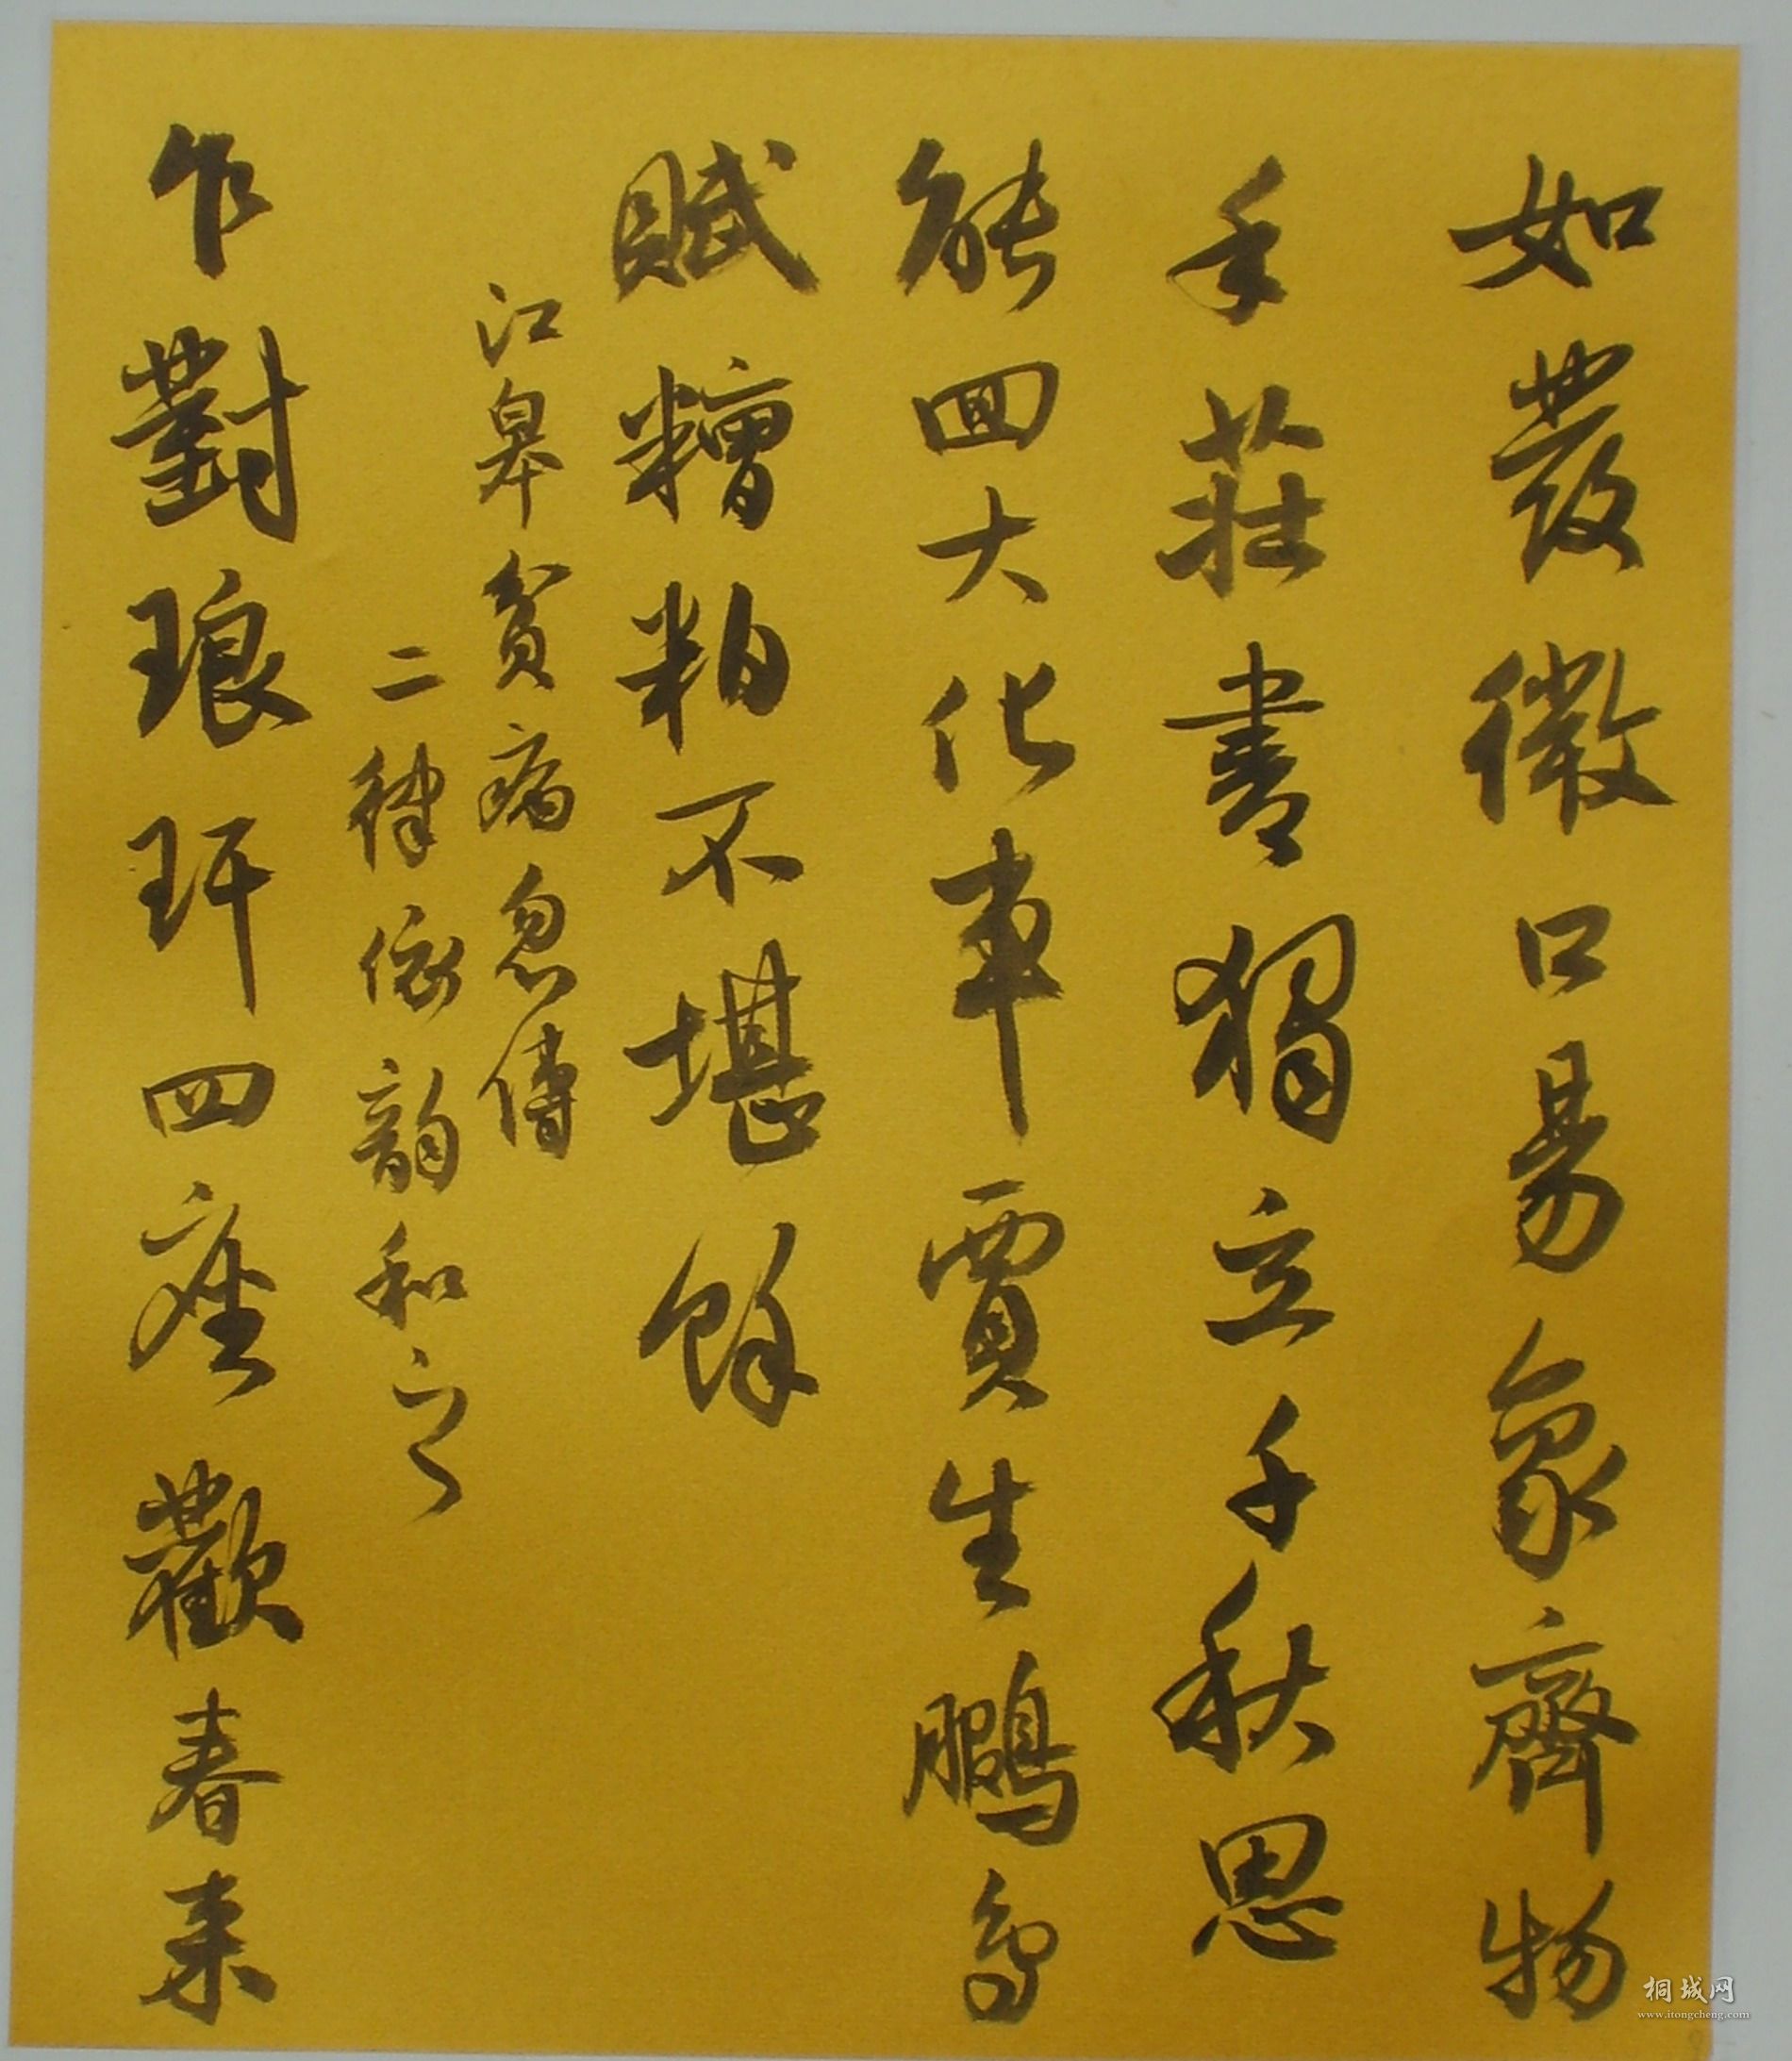 如發微口易象齊物
手莊書獨立千秋思
能回大化事賈生鵬鳥
賦糟粕不堪餘
江皋貧病忽傳
二律依韵和之
乍對琅玕四座歡春来
桐城网
www.itongcheng.com